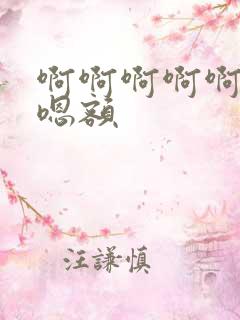 啊啊啊啊啊
嗯额
汪谦慎